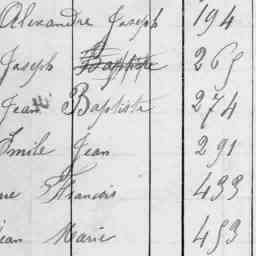 Alexandre Joseph 194
Joseph Baptiste 265
Jean Baptiste 274
Emile Jean 291
François 433
Jean Marie 453